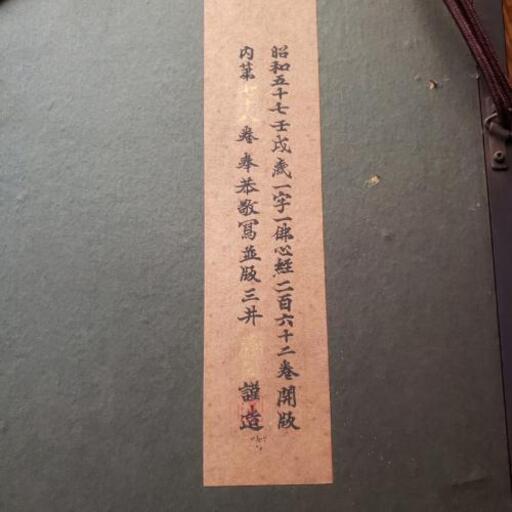 昭和五十七壬戌歳一字一佛心経二百六十二巻開版
内第七十八巻奉恭敬寫並版三井 謹造